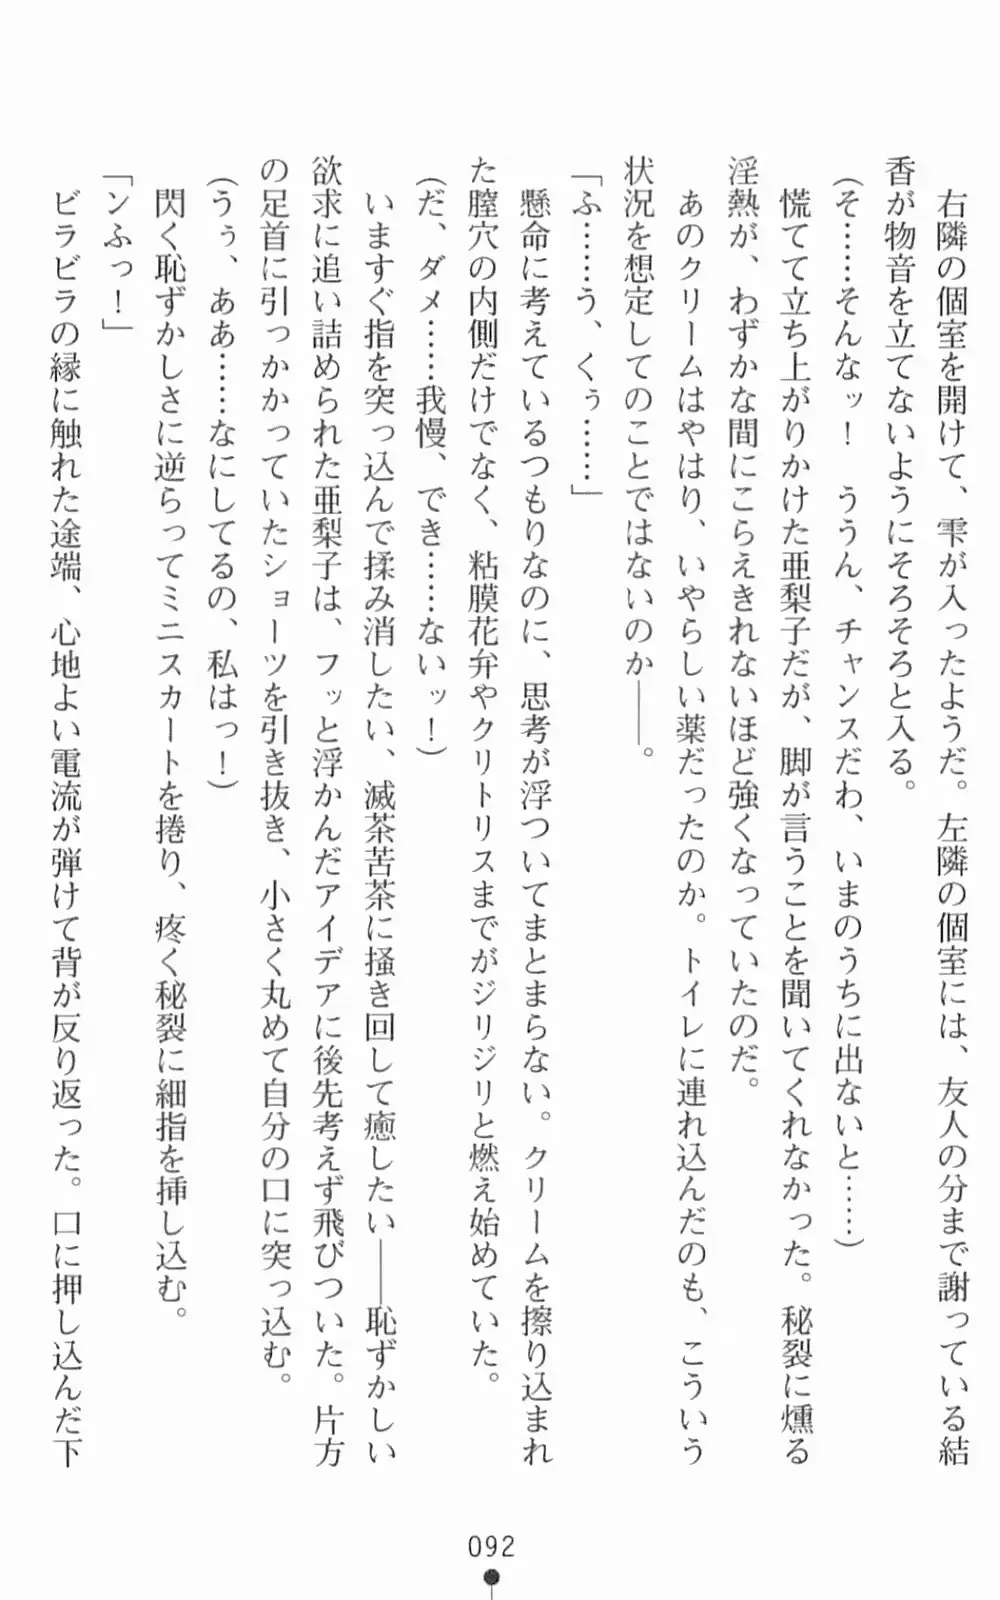 右隣の個室を開けて、雫が入ったようだ。左隣の個室には、友人の分まで謝っている結
香が物音を立てないようにそろそろと入る。
(そ……そんなッ！　ううん、チャンスだわ、いまのうちに出ないと……)
慌てて立ち上がりかけた亜梨子だが、脚が言うことを聞いてくれなかった。秘裂に燻る
淫熱が、わずかな間にこらえきれないほど強くなっていたのだ。
あのクリームはやはり、いやらしい薬だったのか。トイレに連れ込んだのも、こういう
状況を想定してのことではないのか――。
「ふ……う、くぅ……」
懸命に考えているつもりなのに、思考が浮ついてまとまらない。クリームを擦り込まれ
た膣穴の内側だけでなく、粘膜花弁やクリトリスまでがジリジリと燃え始めていた。
(だ、ダメ……我慢、でき……ないッ！)
いますぐ指を突っ込んで揉み消したい、滅茶苦茶に掻き回して癒したい――恥ずかしい
欲求に追い詰められた亜梨子は、フッと浮かんだアイデアに後先考えず飛びついた。片方
の足首に引っかかっていたショーツを引き抜き、小さく丸めて自分の口に突っ込む。
(うぅ、ああ……なにしてるの、私はっ！)
閃く恥ずかしさに逆らってミニスカートを捲り、疼く秘裂に細指を挿し込む。
「ンふっ！」
ビラビラの縁に触れた途端、心地よい電流が弾けて背が反り返った。口に押し込んだ下
092